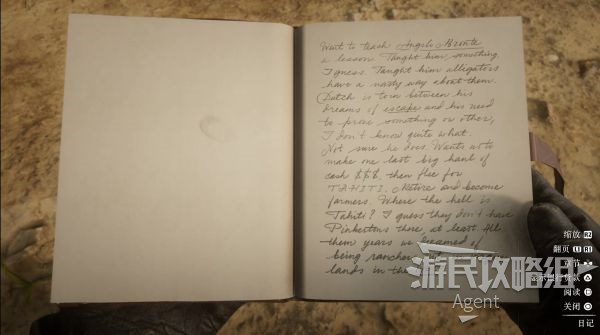 Went to teach Angelo Bronte
a lesson. Taught him something
I guess. Taught him alligators
have a nasty way about them.
Dutch is torn between his
dreams of escape and his need
to prove something or other,
I don't know quite what.
Not sure he does. Wants us to
make one last big haul of
cash $$$, then flee for
TAHITI. Retire and become
farmers. Where the hell is
Tahiti? I guess they don't have
Pinkertons there at least. All
them years we dreamed of
being ranchers
lands in the
缩放 R2
翻页 L1 R1
阅读
关闭
日记
游民攻略组
Agent